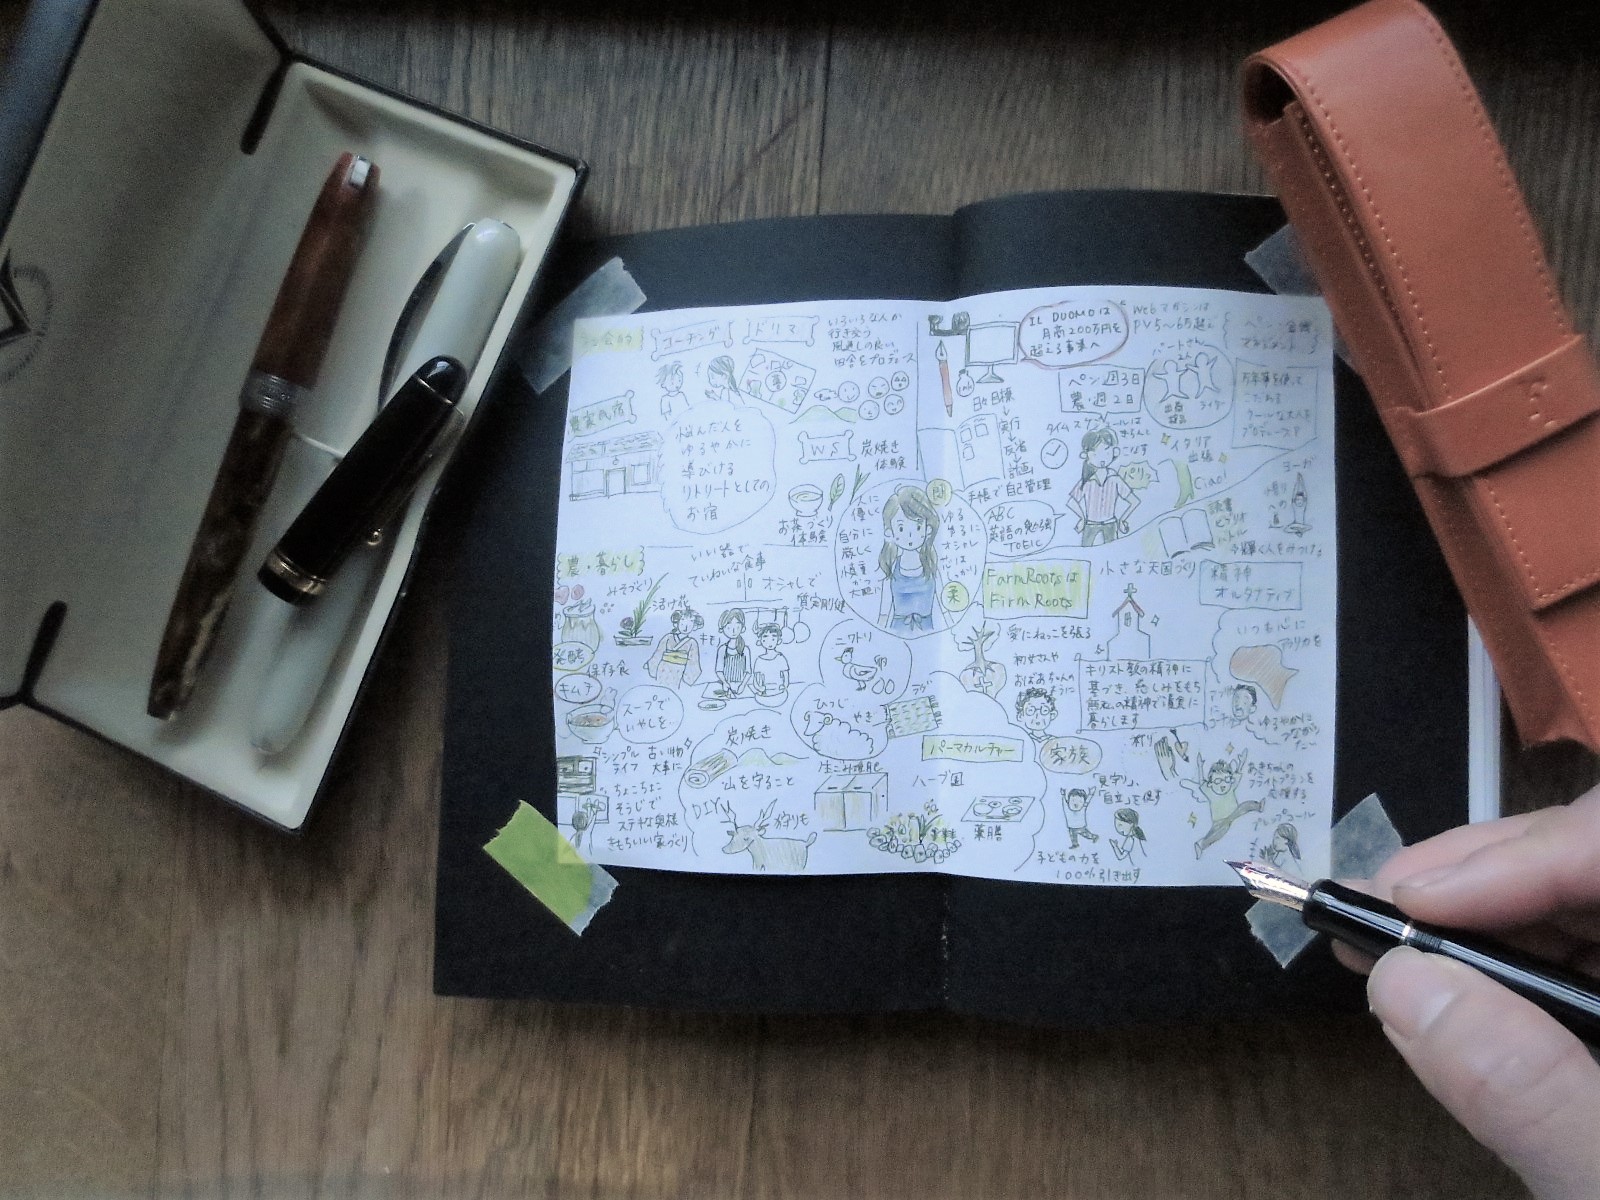 コーチング
ドリマ
いろいろな人が
行き交う
風通しの良い
田舎をプロデュース
農家民宿
悩んだ人を
ゆるやかに
導びける
リトリートとしての
お宿
WS
炭焼き
体験
お茶づくり
体験
IL DUOMOは
月商200万円を
超える事業へ
Webマガジンは
PV5〜6万超で
ペン週3日
農・週2日
パートさん
2人
ライター
日々目標
実行
反省
計画
手帳で自己管理
タイムスケジュールは
きちんと
こなす
イタリア
出張
Ciao!
万年筆を使って
こだわる
クールな大人を
プロデュース
ヨーガ
悟り
への
道
ABC
英語の勉強
TOEIC
読書
ビブリオ
バトル
輝く人をみつける
人に
優しく
自分に
厳しく
慎重
かつ
大胆に
ゆる
ふるに
オシャレ
柔
農・暮らし
みそづくり
活け花
いい器で
ていねいな食事
オシャレで
質実剛健
発酵
保存食
キムチ
スープで
いやしを…
キモノ
ニワトリ
ひつじ
やぎ
FarmRootsは
Firm Roots
小さな天国づくり
精神
オルタナティブ
愛にねっこを張る
初女さんや
おばあちゃんの
ように
キリスト教の精神に
基づき、慈しみをもち
無私の精神で誠実に
暮らします
いつも心に
アフリカを
ゆるやかに
つながり
たい
シンプル
ライフ
古い物
大事に
ちょこちょこ
そうじで
ステキな奥様
きもちいい家づくり
炭焼き
山を守ること
DIY
狩りも
生ごみ堆肥
パーマカルチャー
ハーブ園
薬膳
家族
祈り
「見守り」、
「自立」を促す
子どもの力を
100%引き出す
あきちゃんの
フライトプランを
応援する!